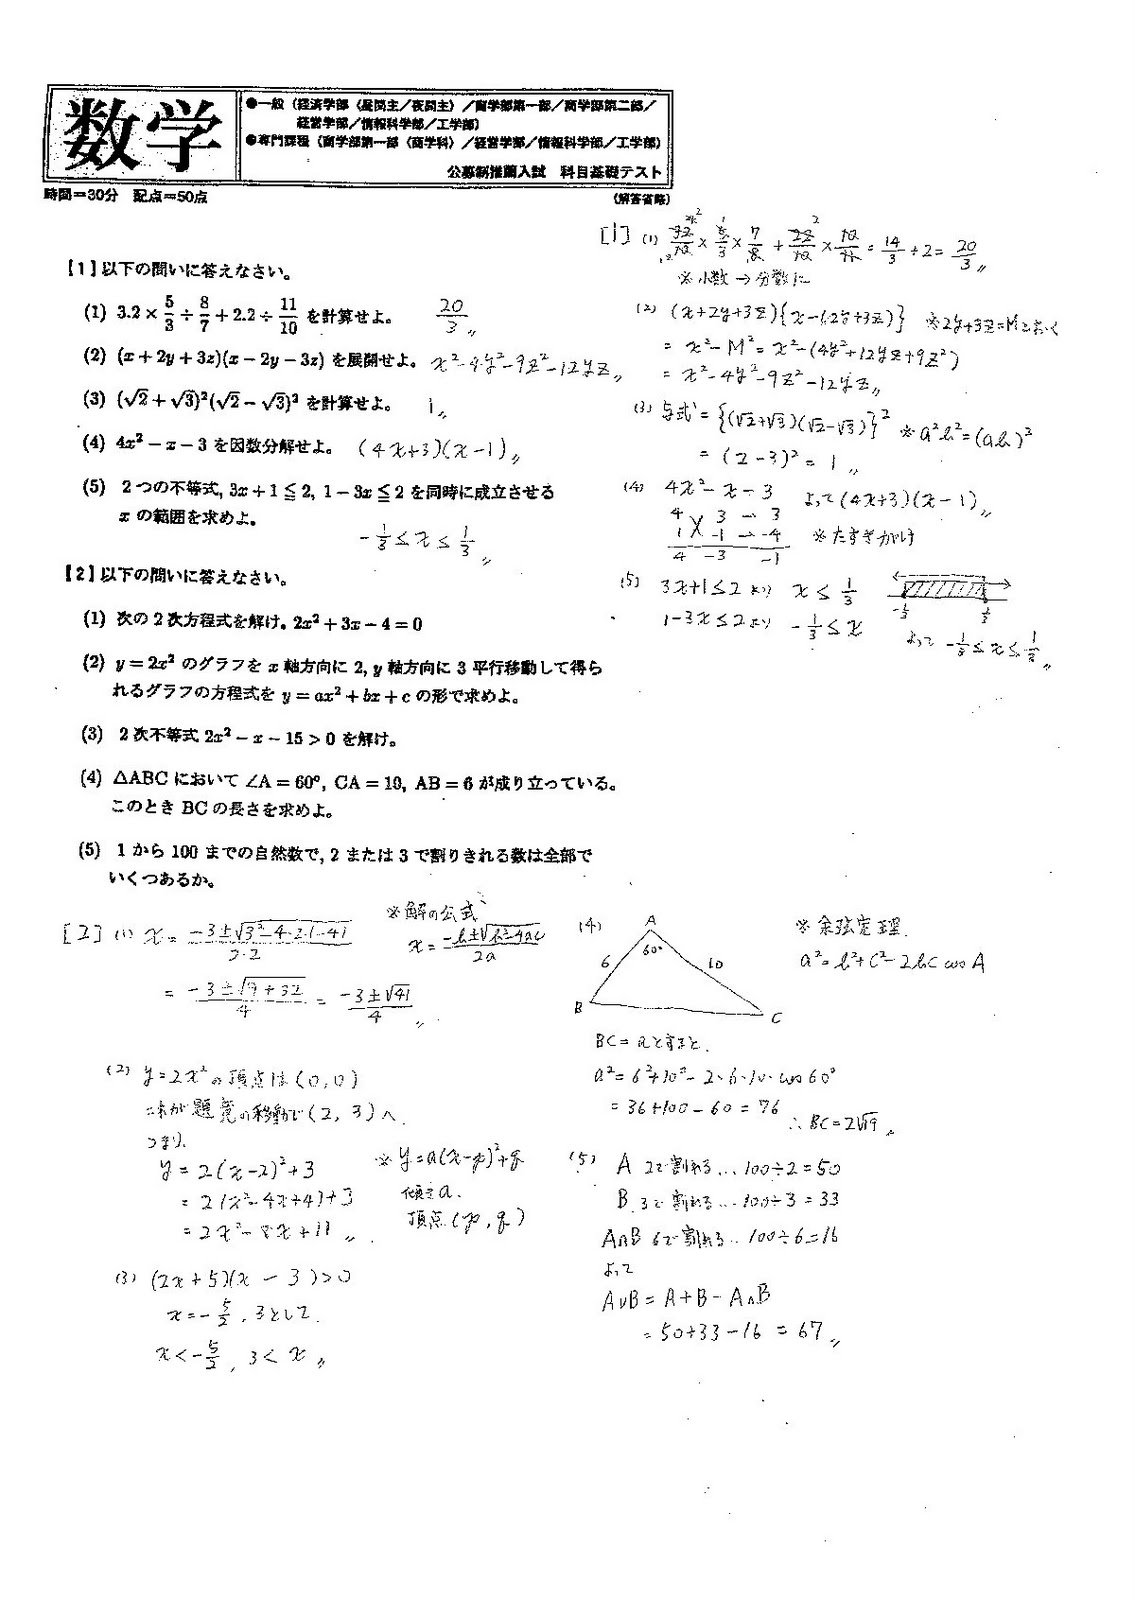 数学
●一般（経済学部（昼間主／夜間主）／商学部第一部／商学部第二部／
経営学部／情報科学部／工学部）
●専門課程（商学部第一部（商学科）／経営学部／情報科学部／工学部）
公募制推薦入試 科目基礎テスト
時間＝30分 配点＝50点
（解答省略）
【1】以下の問いに答えなさい。
(1) 3.2 × 5/3 ÷ 8/7 + 2.2 ÷ 11/10 を計算せよ。 20/3〃
(2) (x + 2y + 3z)(x − 2y − 3z) を展開せよ。 x²−4y²−9z²−12yz〃
(3) (√2 + √3)²(√2 − √3)² を計算せよ。 1〃
(4) 4x² − x − 3 を因数分解せよ。 (4x+3)(x−1)〃
(5) 2つの不等式, 3x + 1 ≦ 2, 1 − 3x ≦ 2 を同時に成立させる
x の範囲を求めよ。
−1/3 ≤ x ≤ 1/3〃
【2】以下の問いに答えなさい。
(1) 次の2次方程式を解け。2x² + 3x − 4 = 0
(2) y = 2x² のグラフを x 軸方向に 2, y 軸方向に 3 平行移動して得ら
れるグラフの方程式を y = ax² + bx + c の形で求めよ。
(3) 2次不等式 2x² − x − 15 > 0 を解け。
(4) △ABC において ∠A = 60°, CA = 10, AB = 6 が成り立っている。
このとき BC の長さを求めよ。
(5) 1 から 100 までの自然数で, 2 または 3 で割りきれる数は全部で
いくつあるか。
[1] (1) 32/10 × 5/3 × 7/8 + 22/10 × 10/11 = 14/3 + 2 = 20/3〃
※小数→分数に
(2) (x+2y+3z){x−(2y+3z)} ※2y+3z=Mとおく
= x²−M² = x²−(4y²+12yz+9z²)
= x²−4y²−9z²−12yz〃
(3) 与式 = {(√2+√3)(√2−√3)}² ※a²b²=(ab)²
= (2−3)² = 1〃
(4) 4x²−x−3 よって(4x+3)(x−1)〃
4 3 → 3
1 -1 → -4
4 -3 -1
※たすきがけ
(5) 3x+1≤2より x ≤ 1/3
1−3x≤2より −1/3 ≤ x
-1/3 1/3
よって −1/3 ≤ x ≤ 1/3〃
[2] (1) x = −3±√3²−4・2・(−4) / 2・2
= −3±√9+32 / 4 = −3±√41 / 4〃
※解の公式
x = −b±√b²−4ac / 2a
(2) y=2x²の頂点は(0,0)
これが題意の移動で(2, 3)へ
つまり
y = 2(x−2)²+3
= 2(x²−4x+4)+3
= 2x²−8x+11〃
※ y=a(x−p)²+q
傾きa.
頂点(p, q)
(3) (2x+5)(x−3)>0
x=−5/2, 3として
x<−5/2, 3<x〃
(4) A
60°
6 10
B C
※余弦定理.
a²=b²+c²−2bc cosA
BC=aとすると,
a²=6²+10²−2・6・10・cos60°
= 36+100−60 = 76
∴BC=2√19〃
(5) A 2で割れる…100÷2=50
B 3で割れる…100÷3=33
A∩B 6で割れる…100÷6=16
よって
A∪B = A+B−A∩B
= 50+33−16 = 67〃